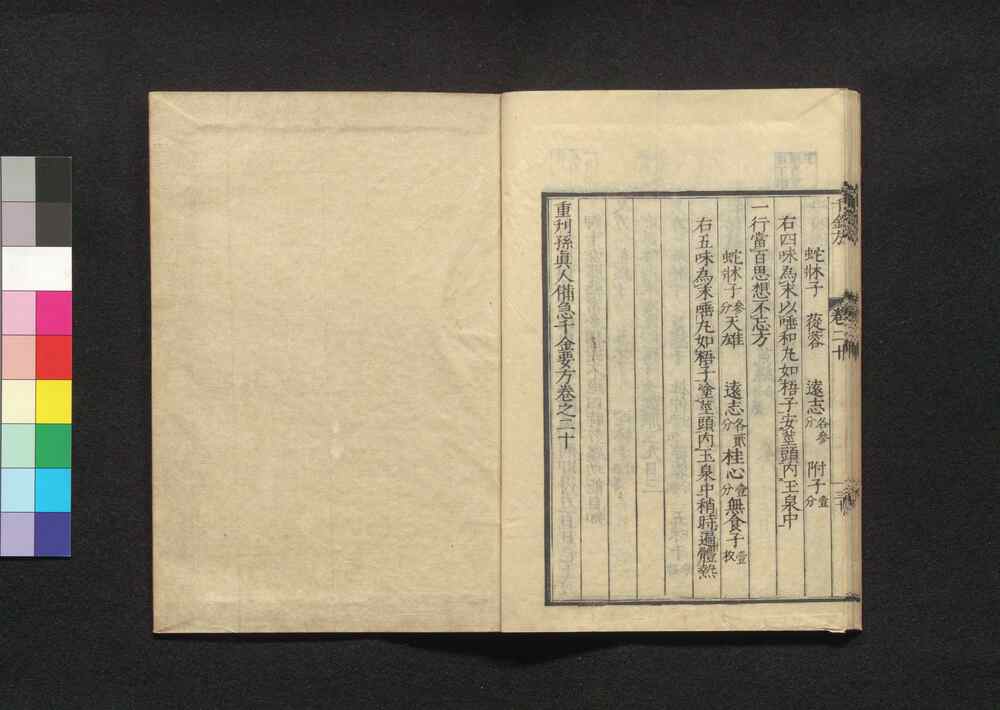 千金方 卷二十
蛇牀子 蓯蓉 遠志各參分 附子壹分
右四味為末以唾和丸如梧子安莖頭內玉泉中
一行當百思想不忘方
蛇牀子參分 天雄 遠志各貳分 桂心壹分 無食子壹枚
右五味為末唾丸如梧子塗莖頭內玉泉中稍時遍體熱
重刊孫真人備急千金要方卷之二十